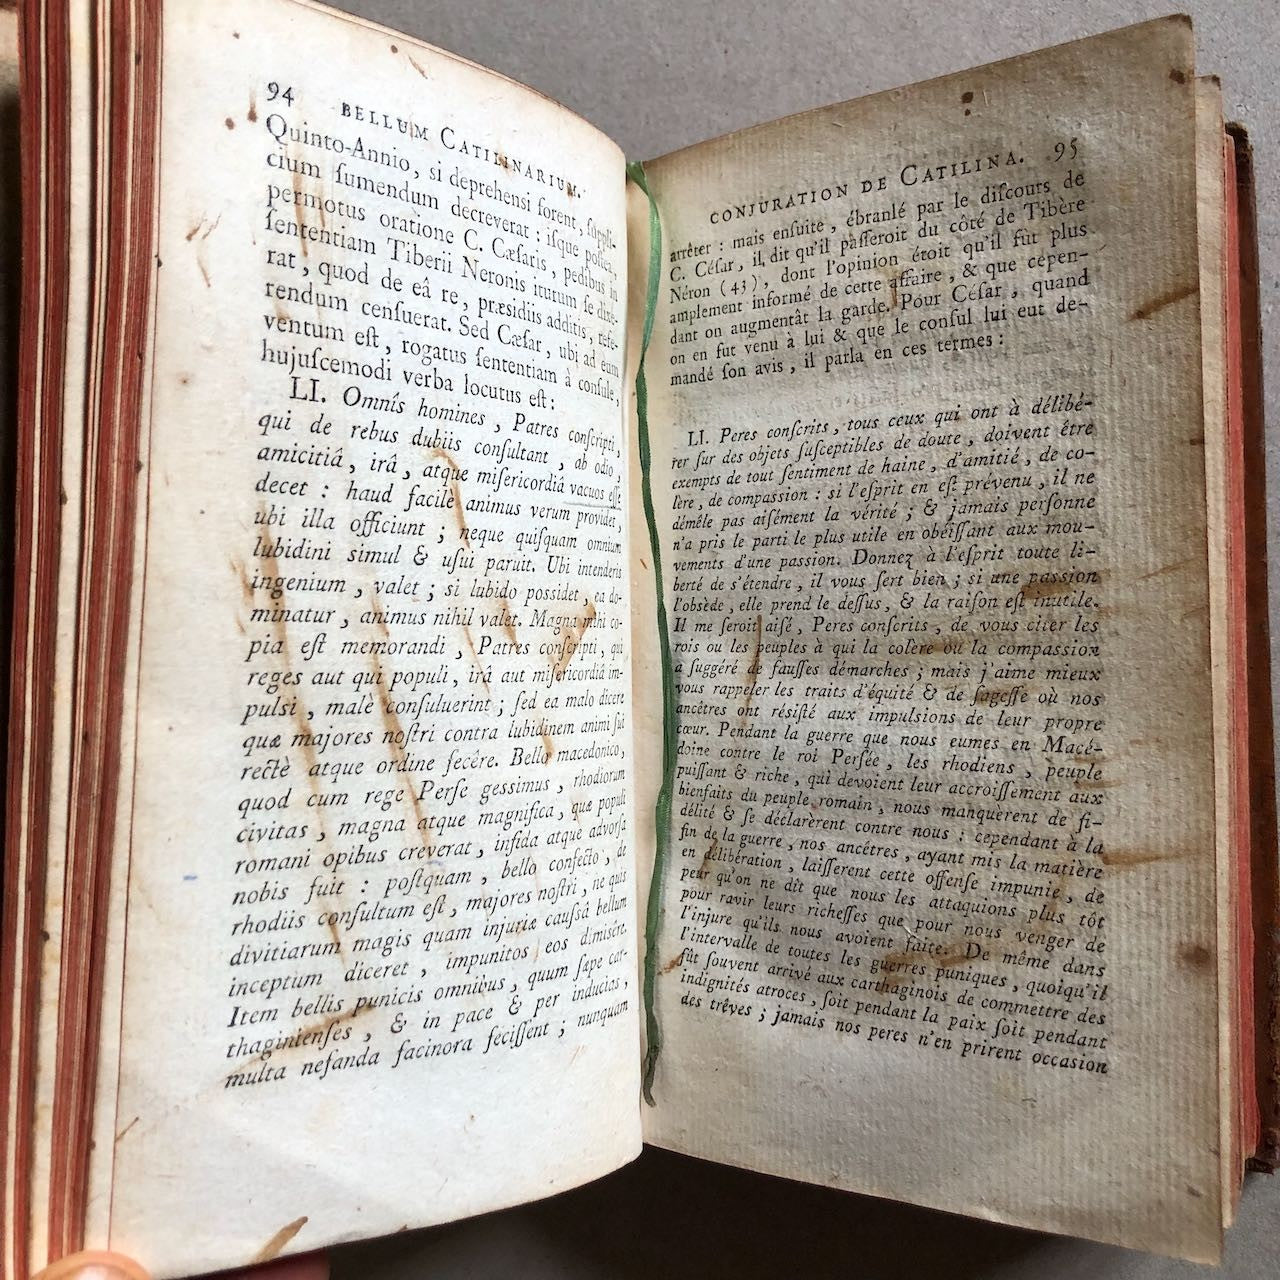 94 BELLUM CATILINARIUM.
Quinto-Annio, si deprehensi forent, ſuppli-
cium ſumendum decreverat : iſque poſtea,
permotus oratione C. Cæſaris, pedibus in
ſententiam Tiberii Neronis iturum ſe dixe-
rat, quod de eâ re, præsidiis additis, refe-
rendum cenſuerat. Sed Cæſar, ubi ad eum
ventum eſt, rogatus ſententiam à conſule,
hujuſcemodi verba locutus eſt :
LI. Omnîs homines, Patres conſcripti,
qui de rebus dubiis conſultant, ab odio,
amicitiâ, irâ, atque miſericordiâ vacuos eſſe
decet : haud facilè animus verum providet,
ubi illa officiunt ; neque quiſquam omnium
lubidini simul & uſui paruit. Ubi intenderis
ingenium, valet ; si lubido possidet, ea do-
minatur, animus nihil valet. Magna mihi co-
pia eſt memorandi, Patres conſcripti, qui
reges aut qui populi, irâ aut miſericordiâ im-
pulsi, malè conſuluerint ; ſed ea malo dicere
quæ majores noſtri contra lubidinem animi ſui
rectè atque ordine fecêre. Bello macedonico,
quod cum rege Perſe gessimus, rhodiorum
civitas, magna atque magnifica, quæ populi
romani opibus creverat, infida atque advorſa
nobis fuit : poſtquam, bello confecto, de
rhodiis conſultum eſt, majores noſtri, ne quis
divitiarum magis quam injuriæ cauſſâ bellum
inceptum diceret, impunitos eos dimisêre.
Item bellis punicis omnibus, quum ſæpe car-
thaginienſes, & in pace & per inducias,
multa nefanda facinora feciſſent ; nunquam
CONJURATION DE CATILINA. 95
arrêter : mais enſuite, ébranlé par le diſcours de
C. Céſar, il dit qu'il paſſeroit du côté de Tibère
Néron (43), dont l'opinion étoit qu'il fût plus
amplement informé de cette affaire, & que cepen-
dant on augmentât la garde. Pour Céſar, quand
on en fut venu à lui & que le conſul lui eut de-
mandé ſon avis, il parla en ces termes :
LI. Peres conſcrits, tous ceux qui ont à délibé-
rer ſur des objets ſuſceptibles de doute, doivent être
exempts de tout ſentiment de haine, d'amitié, de co-
lère, de compassion : si l'eſprit en eſt prévenu, il ne
démêle pas aiſément la vérité ; & jamais perſonne
n'a pris le parti le plus utile en obéiſſant aux mou-
vements d'une passion. Donnez à l'eſprit toute li-
berté de s'étendre, il vous ſert bien ; si une passion
l'obsède, elle prend le deſſus, & la raiſon eſt inutile.
Il me ſeroit aiſé, Peres conſcrits, de vous citer les
rois ou les peuples à qui la colère ou la compassion
a ſuggéré de fauſſes démarches ; mais j'aime mieux
vous rappeler les traits d'équité & de ſageſſe où nos
ancêtres ont réſiſté aux impulsions de leur propre
cœur. Pendant la guerre que nous eumes en Macé-
doine contre le roi Perſée, les rhodiens, peuple
puiſſant & riche, qui devoient leur accroiſſement aux
bienfaits du peuple romain, nous manquèrent de fi-
délité & ſe déclarèrent contre nous : cependant à la
fin de la guerre, nos ancêtres, ayant mis la matière
en délibération, laiſſerent cette offenſe impunie, de
peur qu'on ne dît que nous les attaquions plus tôt
pour ravir leurs richeſſes que pour nous venger de
l'injure qu'ils nous avoient faite. De même dans
l'intervalle de toutes les guerres puniques, quoiqu'il
fût ſouvent arrivé aux carthaginois de commettre des
indignités atroces, ſoit pendant la paix ſoit pendant
des trêves ; jamais nos peres n'en prirent occasion